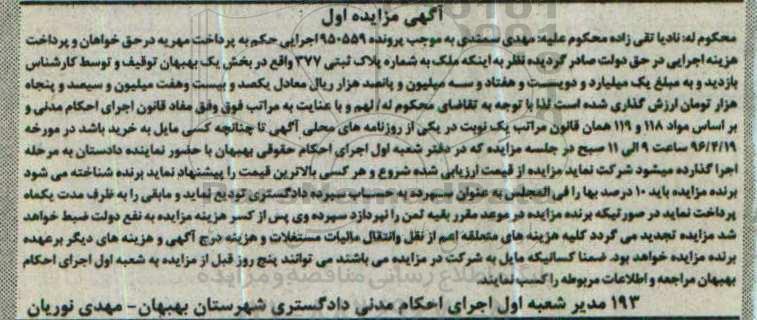 آگهی مزایده اول
محکوم له: نادیا تقی زاده محکوم علیه: مهدی سمندی به موجب پرونده ۹۵۰۵۵۹ اجرایی حکم به پرداخت مهریه در حق خواهان و پرداخت
هزینه اجرایی در حق دولت صادر گردیده نظر به اینکه ملک به شماره پلاک ثبتی ۳۷۷ واقع در بخش یک بهبهان توقیف و توسط کارشناس
بازدید و به مبلغ یک میلیارد و دویست و هفتاد و سه میلیون و پانصد هزار ریال معادل یکصد و بیست وهفت میلیون و سیصد و پنجاه
هزار تومان ارزش گذاری شده است لذا با توجه به تقاضای محکوم له / لهم و با عنایت به مراتب فوق وفق مفاد قانون اجرای احکام مدنی و
بر اساس مواد ۱۱۸ و ۱۱۹ همان قانون مراتب یک نوبت در یکی از روزنامه های محلی آگهی تا چنانچه کسی مایل به خرید باشد در مورخه
۹۶/۴/۱۹ ساعت ۹ الی ۱۱ صبح در جلسه مزایده که در دفتر شعبه اول اجرای احکام حقوقی بهبهان با حضور نماینده دادستان به مرحله
اجرا گذارده میشود شرکت نماید مزایده از قیمت ارزیابی شده شروع و هر کسی بالاترین قیمت را پیشنهاد نماید برنده شناخته می شود
برنده مزایده باید ۱۰ درصد بها را فی المجلس به عنوان سپرده به حساب سپرده دادگستری تودیع نماید و مابقی را به ظرف مدت یکماه
پرداخت نماید در صورتیکه برنده مزایده در موعد مقرر بقیه ثمن را نپردازد سپرده وی پس از کسر هزینه مزایده به نفع دولت ضبط خواهد
شد مزایده تجدید می گردد کلیه هزینه های متعلقه اعم از نقل وانتقال مالیات مستغلات و هزینه درج آگهی و هزینه های دیگر برعهده
برنده مزایده خواهد بود. ضمنا کسانیکه مایل به شرکت در مزایده می باشند می توانند پنج روز قبل از مزایده به شعبه اول اجرای احکام
بهبهان مراجعه و اطلاعات مربوطه را کسب نمایند.
۱۹۳ مدیر شعبه اول اجرای احکام مدنی دادگستری شهرستان بهبهان- مهدی نوریان